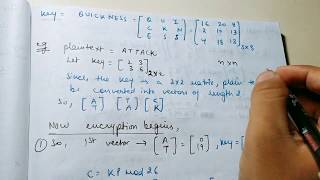 Key = QUICKNESS = [Q U I = [16 20 8
C K N 2 10 13
E S S] 4 18 18] 3x3
eg plaintext = ATTACK
Let key = [2 3 n x n
3 6] 2x2
Since the key is a 2x2 matrix, plain
be converted into vectors of length 2
So, [A T] [T A] [C K]
Now encryption begins,
① So, 1st vector → [A T] = [0 19], key = [
C = KP mod 26